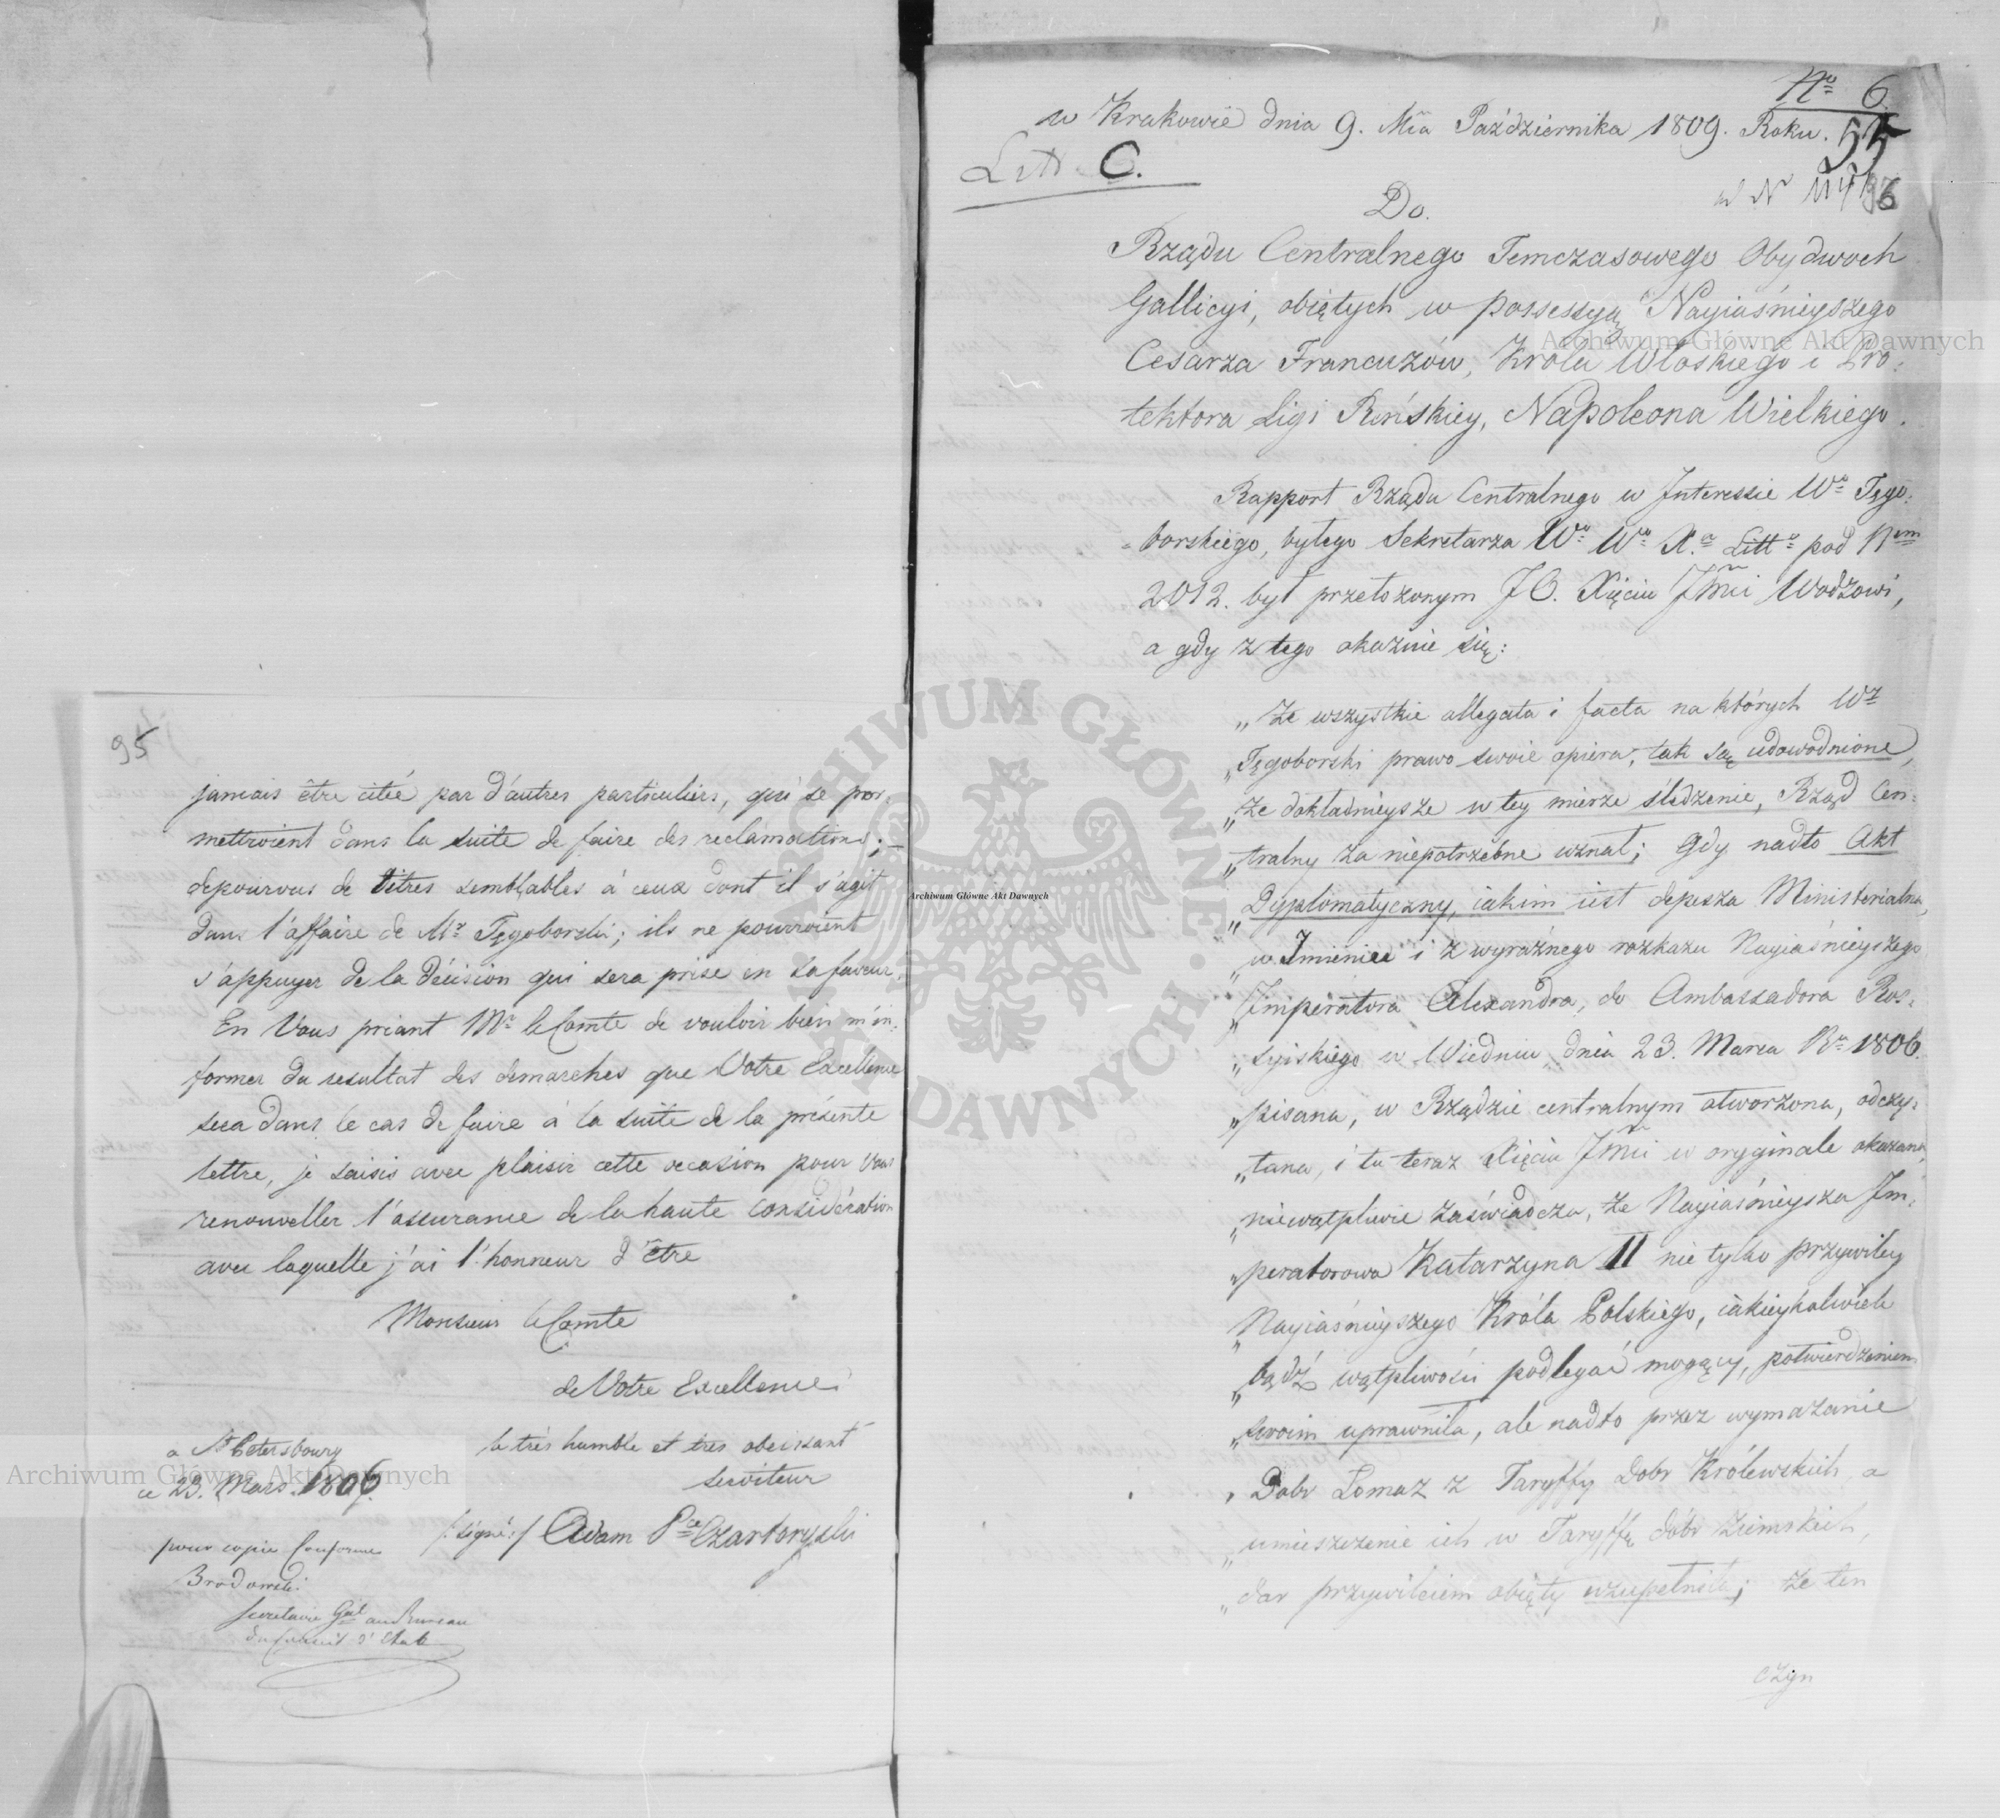 95
jamais être citée par d'autres particuliers, qui se per-
mettroient dans la suite de faire des reclamations;
depourvus de titres semblables à ceux dont il s'agit
dans l'affaire de Mr Tęgoborski; ils ne pourroient
s'appuyer de la décision qui sera prise en sa faveur.
En Vous priant Mr le Comte de vouloir bien m'in-
former du resultat des demarches que Votre Excellence
sera dans le cas de faire à la suite de la présente
lettre, je saisis avec plaisir cette occasion pour Vous
renouveller l'assurance de la haute considération
avec laquelle j'ai l'honneur d'être
Monsieur le Comte
de Votre Excellence
le très humble et très obeissant
serviteur
à St Petersbourg
ce 23. Mars. 1806.
/:signé:/ Adam Pce Czartoryski
pour copie Conforme
Brodowski
Secretaire Gal au Bureau
du Conseil d'Etat
No 6.
w Krakowie dnia 9. Mca Października 1809. Roku.
55
Litt. C.
Do
Rządu Centralnego Temczasowego Obydwoch
Gallicyi, obiętych w possessyą Nayiaśnieyszego
Cesarza Francuzów, Króla Włoskiego i Pro-
tektora Ligi Reńskiey, Napoleona Wielkiego.
Rapport Rządu Centralnego w Interessie Wo Tęgo-
borskiego, byłego Sekretarza Wo Wo X. Litto pod Nem
2012. był przełożonym J.O. Xięciu Jmci Wodzowi,
a gdy z tego okazuie się:
„że wszystkie allegata i facta na których Wz
„Tęgoborski prawo swoie opiera, tak są udowodnione,
„że dokładnieysze w tey mierze śledzenie, Rząd Cen-
„tralny za niepotrzebne uznał; gdy nadto Akt
„Dyplomatyczny, iakim iest depesza Ministerialna,
„w Imieniu i z wyraźnego rozkazu Nayiaśnieyszego
„Imperatora Alexandra, do Ambassadora Ros-
„syiskiego w Wiedniu dnia 23. Marca Ru 1806.
„pisana, w Rządzie centralnym otworzona, odczy-
„tana, i tu teraz Xięciu Jmci w oryginale okazana,
„niewątpliwie zaświadcza, że Nayiaśnieysza Im-
„peratorowa Katarzyna II nie tylko przywiley
„Nayiaśnieyszego Króla Polskiego, iakieykolwiek
„bądź wątpliwości podlegać mogący, potwierdzeniem
„swoim uprawniła, ale nadto przez wymazanie
„Dobr Łomaz z Taryffy Dobr Królewskich, a
„umieszczenie ich w Taryffę dóbr ziemskich,
„dar przywileiem obięty uzupełniła; że ten
czyn
Archiwum Główne Akt Dawnych
Archiwum Główne Akt Dawnych
Archiwum Główne Akt Dawnych
ARCHIWUM GŁÓWNE AKT DAWNYCH